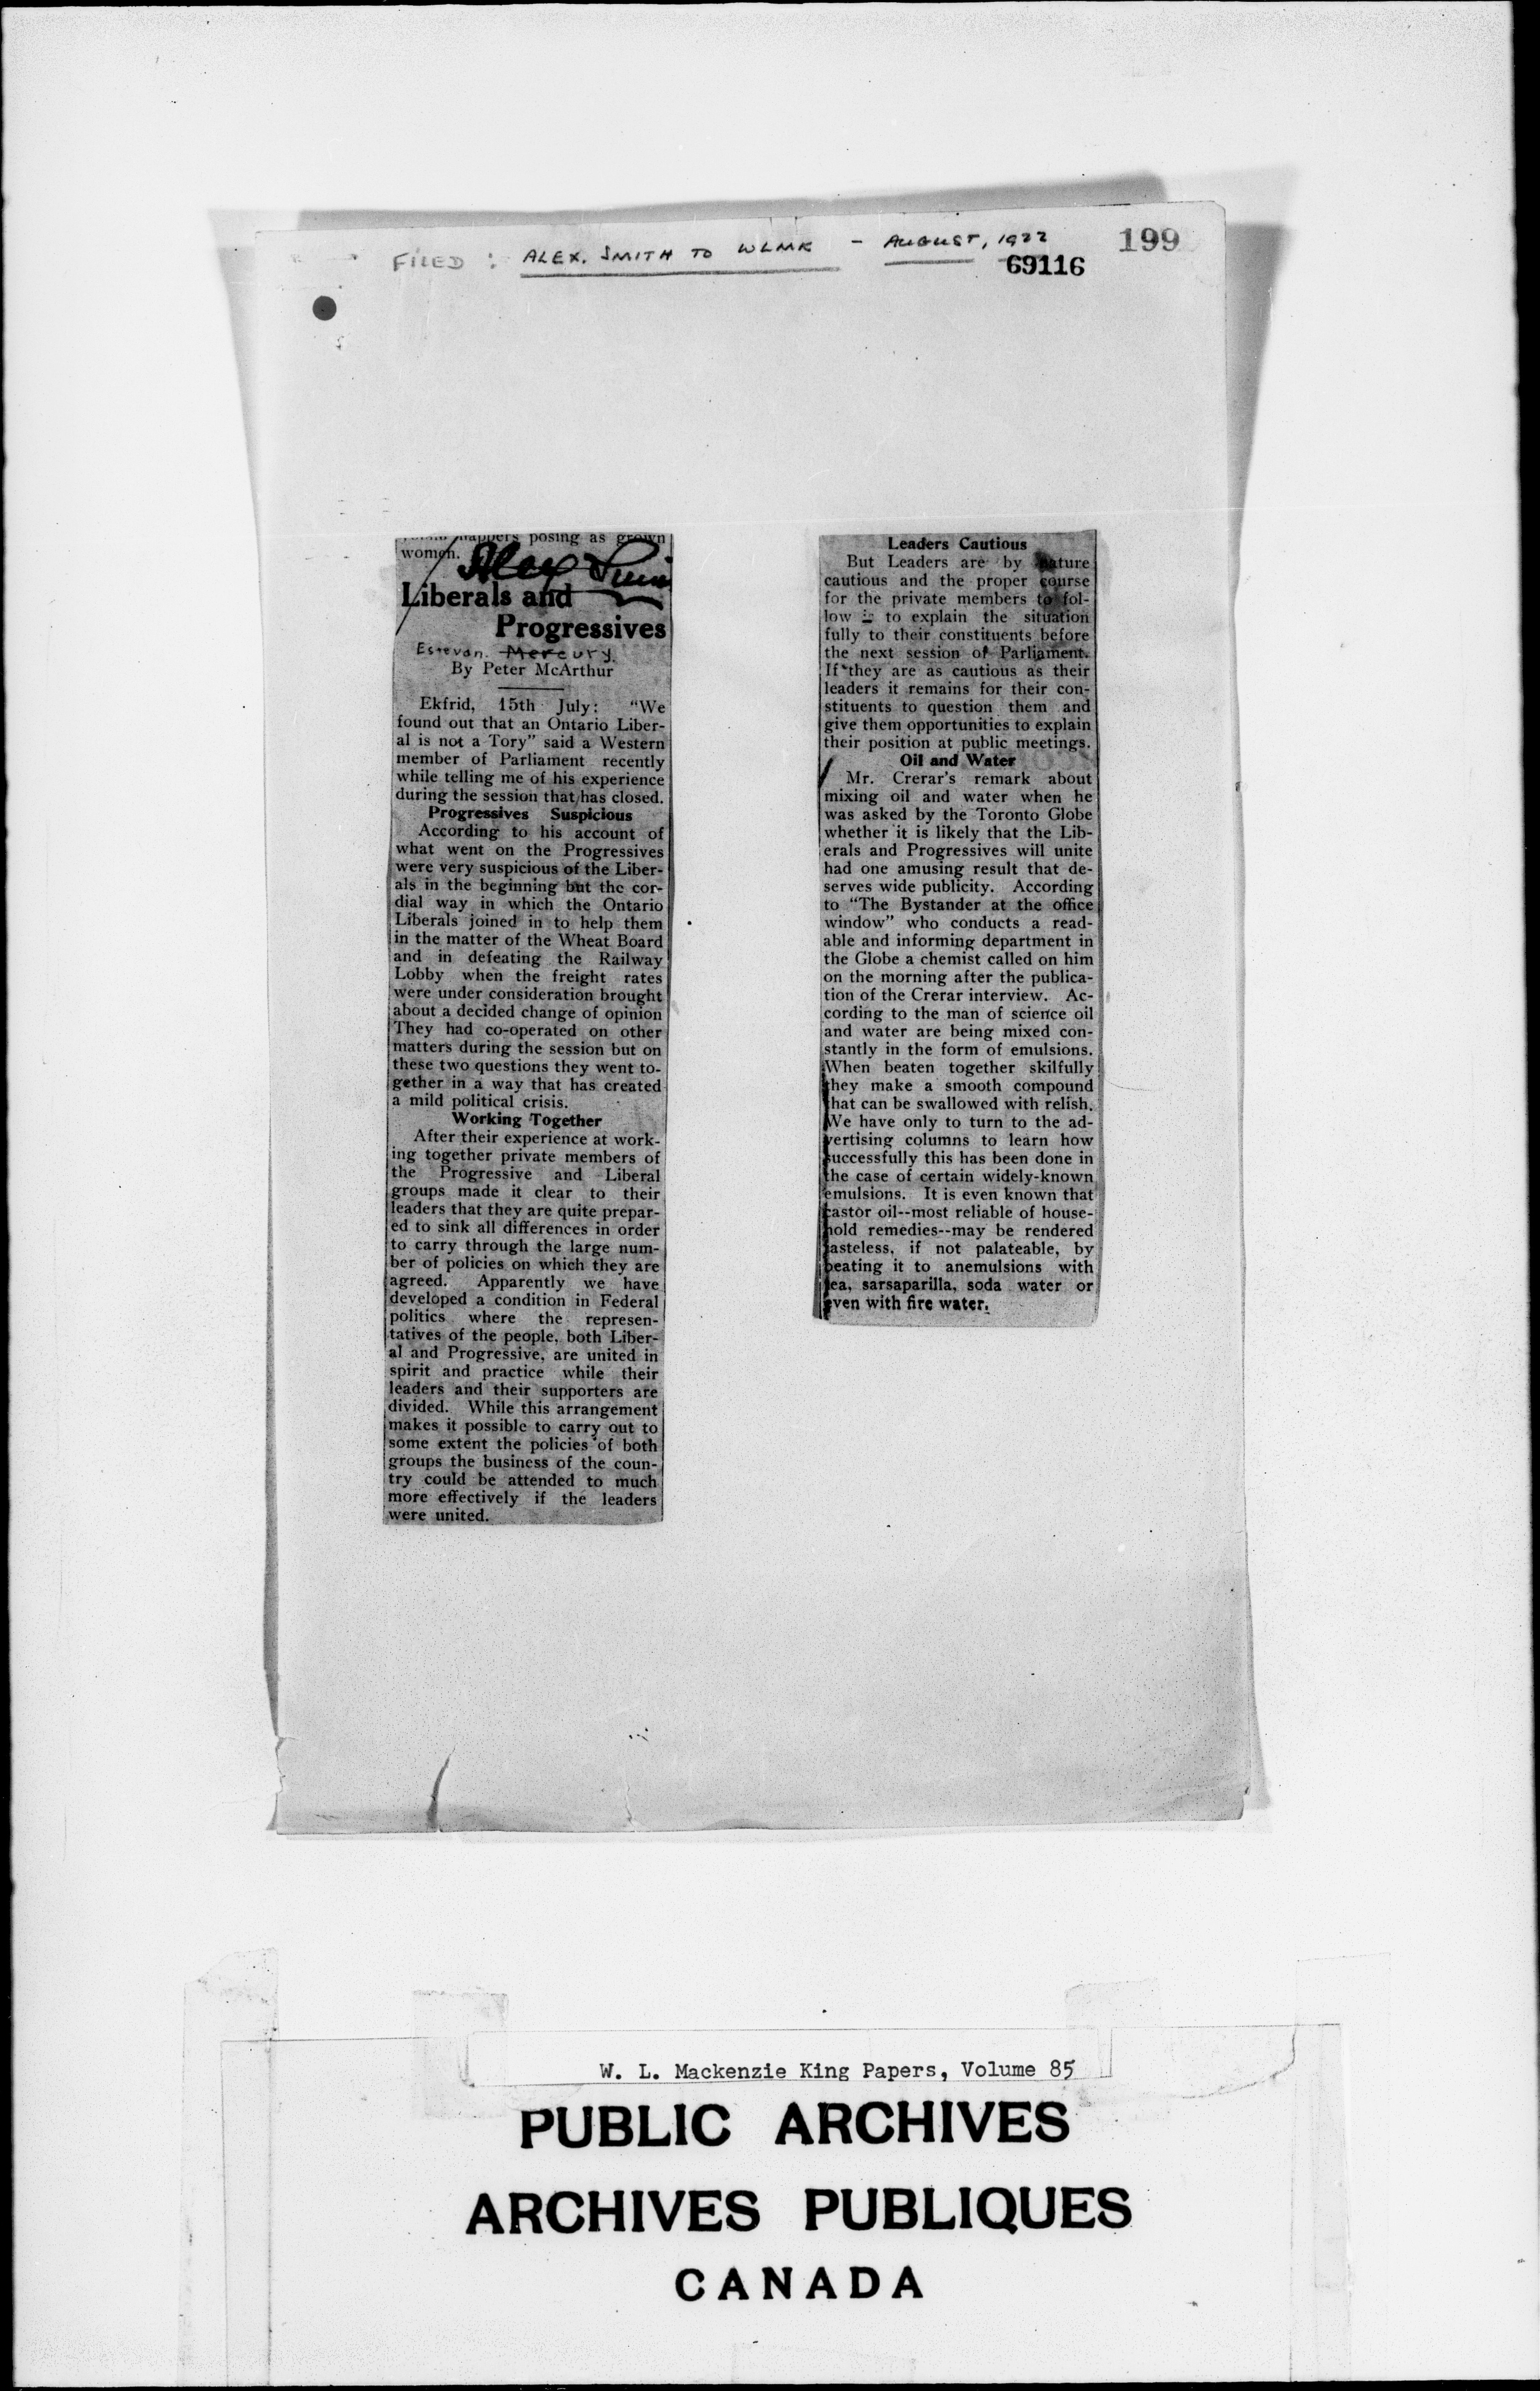 FILED : ALEX. SMITH TO WLMK - AUGUST, 1922
199
69116
posing as grown
women.
Alex
Liberals and
Progressives
Estevan. Mercury.
By Peter McArthur
Ekfrid, 15th July: "We
found out that an Ontario Liber-
al is not a Tory" said a Western
member of Parliament recently
while telling me of his experience
during the session that has closed.
Progressives Suspicious
According to his account of
what went on the Progressives
were very suspicious of the Liber-
als in the beginning but the cor-
dial way in which the Ontario
Liberals joined in to help them
in the matter of the Wheat Board
and in defeating the Railway
Lobby when the freight rates
were under consideration brought
about a decided change of opinion
They had co-operated on other
matters during the session but on
these two questions they went to-
gether in a way that has created
a mild political crisis.
Working Together
After their experience at work-
ing together private members of
the Progressive and Liberal
groups made it clear to their
leaders that they are quite prepar-
ed to sink all differences in order
to carry through the large num-
ber of policies on which they are
agreed. Apparently we have
developed a condition in Federal
politics where the represen-
tatives of the people, both Liber-
al and Progressive, are united in
spirit and practice while their
leaders and their supporters are
divided. While this arrangement
makes it possible to carry out to
some extent the policies of both
groups the business of the coun-
try could be attended to much
more effectively if the leaders
were united.
Leaders Cautious
But Leaders are by nature
cautious and the proper course
for the private members to fol-
low is to explain the situation
fully to their constituents before
the next session of Parliament.
If they are as cautious as their
leaders it remains for their con-
stituents to question them and
give them opportunities to explain
their position at public meetings.
Oil and Water
Mr. Crerar's remark about
mixing oil and water when he
was asked by the Toronto Globe
whether it is likely that the Lib-
erals and Progressives will unite
had one amusing result that de-
serves wide publicity. According
to "The Bystander at the office
window" who conducts a read-
able and informing department in
the Globe a chemist called on him
on the morning after the publica-
tion of the Crerar interview. Ac-
cording to the man of science oil
and water are being mixed con-
stantly in the form of emulsions.
When beaten together skilfully
they make a smooth compound
that can be swallowed with relish.
We have only to turn to the ad-
vertising columns to learn how
successfully this has been done in
the case of certain widely-known
emulsions. It is even known that
castor oil--most reliable of house-
hold remedies--may be rendered
tasteless, if not palateable, by
beating it to anemulsions with
tea, sarsaparilla, soda water or
even with fire water.
W. L. Mackenzie King Papers, Volume 85
PUBLIC ARCHIVES
ARCHIVES PUBLIQUES
CANADA